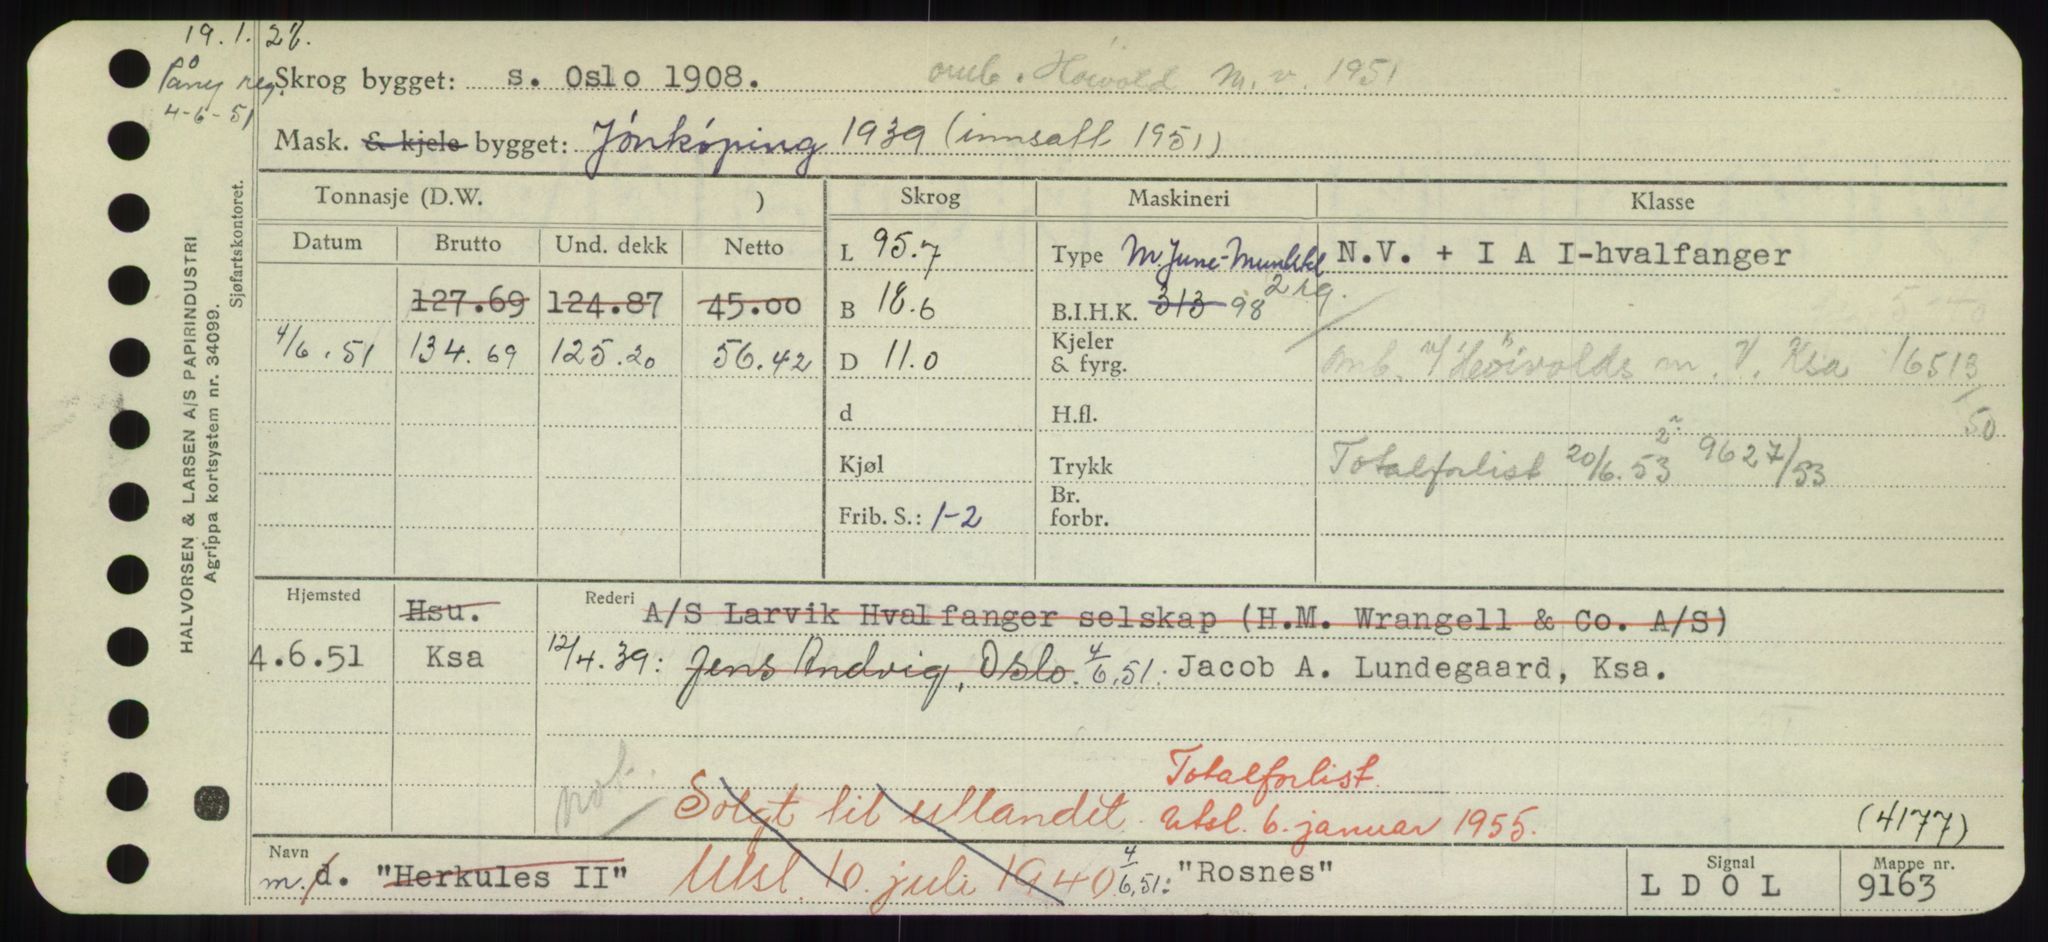 19.1.28.
Påny reg.
4-6-51
Skrog bygget: s. Oslo 1908. omb. Høivold m.v. 1951
Mask. & kjele bygget: Jönköping 1939 (innsatt 1951)
Tonnasje (D.W. ) Skrog Maskineri Klasse
Datum Brutto Und. dekk Netto L 95.7 Type M. June-Munktel N.V. + I A I-hvalfanger
2 sg.
127.69 124.87 45.00 B 18.6 B.I.H.K. 313 98
4/6.51 134.69 125.20 56.42 D 11.0 Kjeler & fyrg. omb. v/Høivolds m.V. Ksa 16513/50
d H.fl.
Kjøl Trykk Totalforlist 20/6.53 9627/53
Frib. S.: 1-2 Br. forbr.
Hjemsted Hsu. Rederi A/S Larvik Hvalfangerselskap (H.M. Wrangell & Co. A/S)
4.6.51 Ksa 12/4.39: Jens Andvig, Oslo. 4/6.51. Jacob A. Lundegaard, Ksa.
not. Totalforlist.
Solgt til utlandet. Utsl. 6. januar 1955. (4177)
Navn Signal Mappe nr.
m./d. "Herkules II" Utsl. 10. juli 1940 4/6.51: "Rosnes" L D O L 9163
HALVORSEN & LARSEN A/S PAPIRINDUSTRI
Agrippa kortsystem nr. 34099.
Sjøfartskontoret.